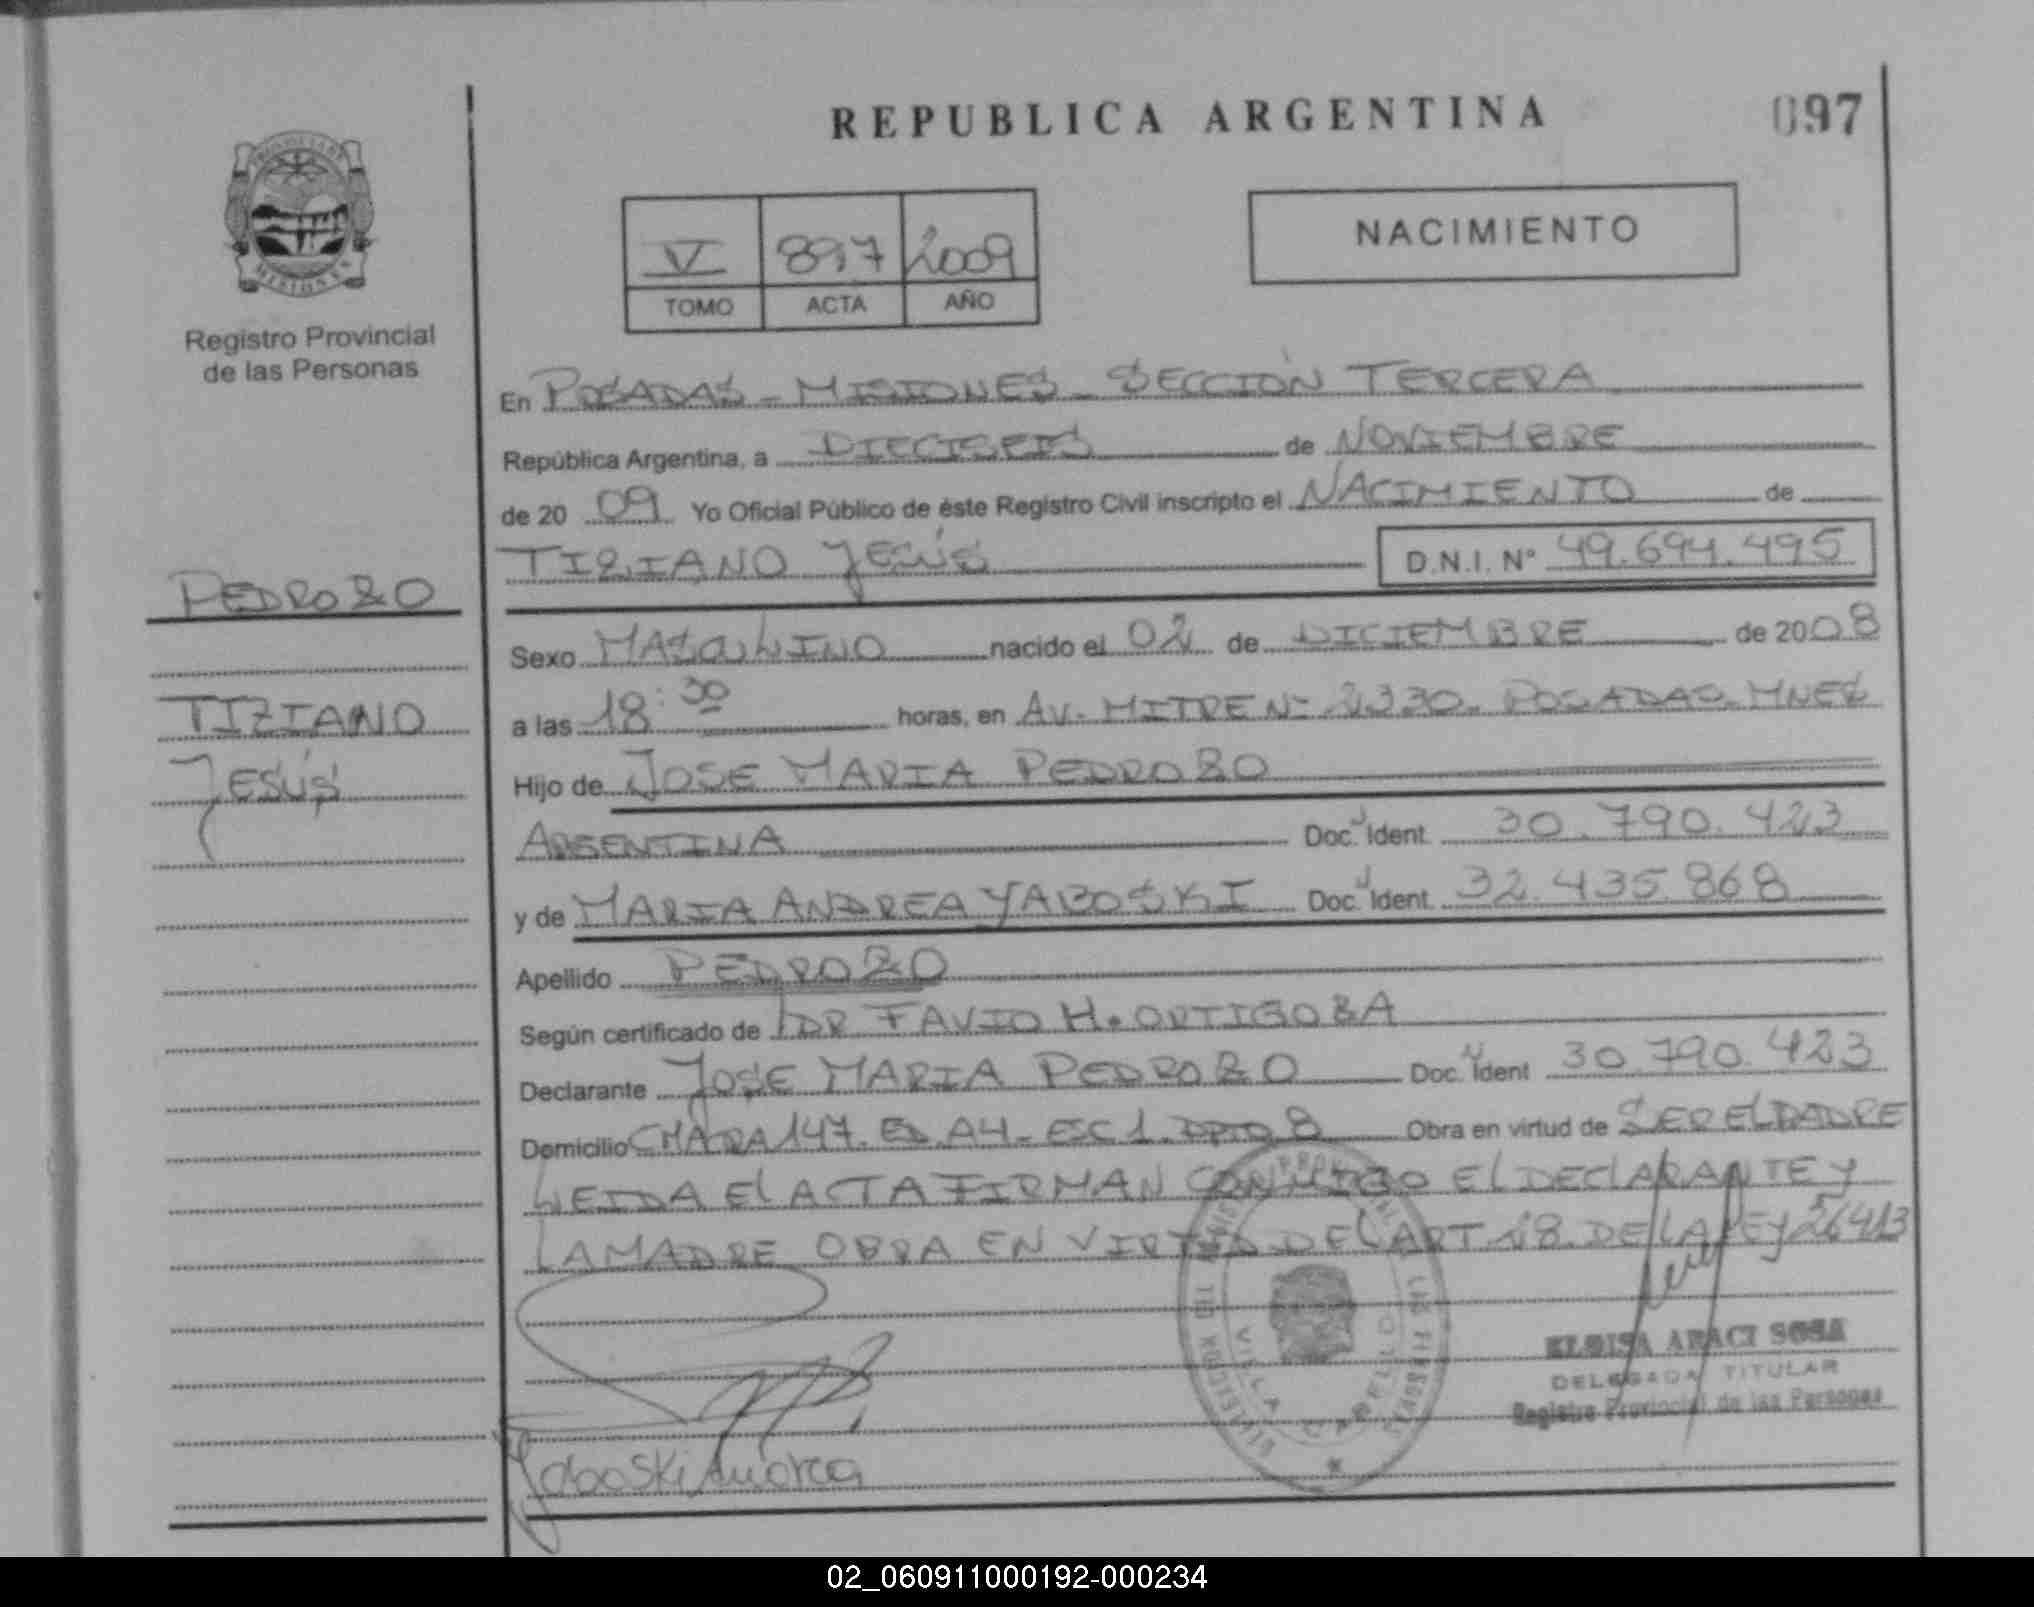 REPUBLICA ARGENTINA
097
PROVINCIA DE
MISIONES
Registro Provincial
de las Personas
V 897 2009
TOMO ACTA AÑO
NACIMIENTO
En POSADAS - MISIONES - SECCIÓN TERCERA
República Argentina, a DIECISEIS de NOVIEMBRE
de 20 09 Yo Oficial Público de éste Registro Civil inscripto el NACIMIENTO de
TIZIANO JESÚS D.N.I. Nº 49.694.495
PEDROZO
TIZIANO
JESÚS
Sexo MASCULINO nacido el 02 de DICIEMBRE de 2008
a las 18:30 horas, en AV. MITRE Nº 2330. POSADAS-MNES
Hijo de JOSE MARIA PEDROZO
ARGENTINA Doc. Ident. 30.790.423
y de MARIA ANDREA YABOSKI Doc. Ident. 32.435.868
Apellido PEDROZO
Según certificado de DR FAVIO H. ORTIGOZA
Declarante JOSE MARIA PEDROZO Doc. Ident 30.790.423
Domicilio CHACRA 147. ED. A4. ESC 1. DPTO 8 Obra en virtud de SER EL PADRE
LEIDA El ACTA FIRMAN CONMIGO El DEClARANTE y
LA MADRE OBRA EN VIRTUD DEL ART 18. DE LA LEy 26413
VILLA CABELLO
ELOISA ARACI SOSA
DELEGADA TITULAR
Registro Provincial de las Personas
Yaboski Andrea
02_060911000192-000234